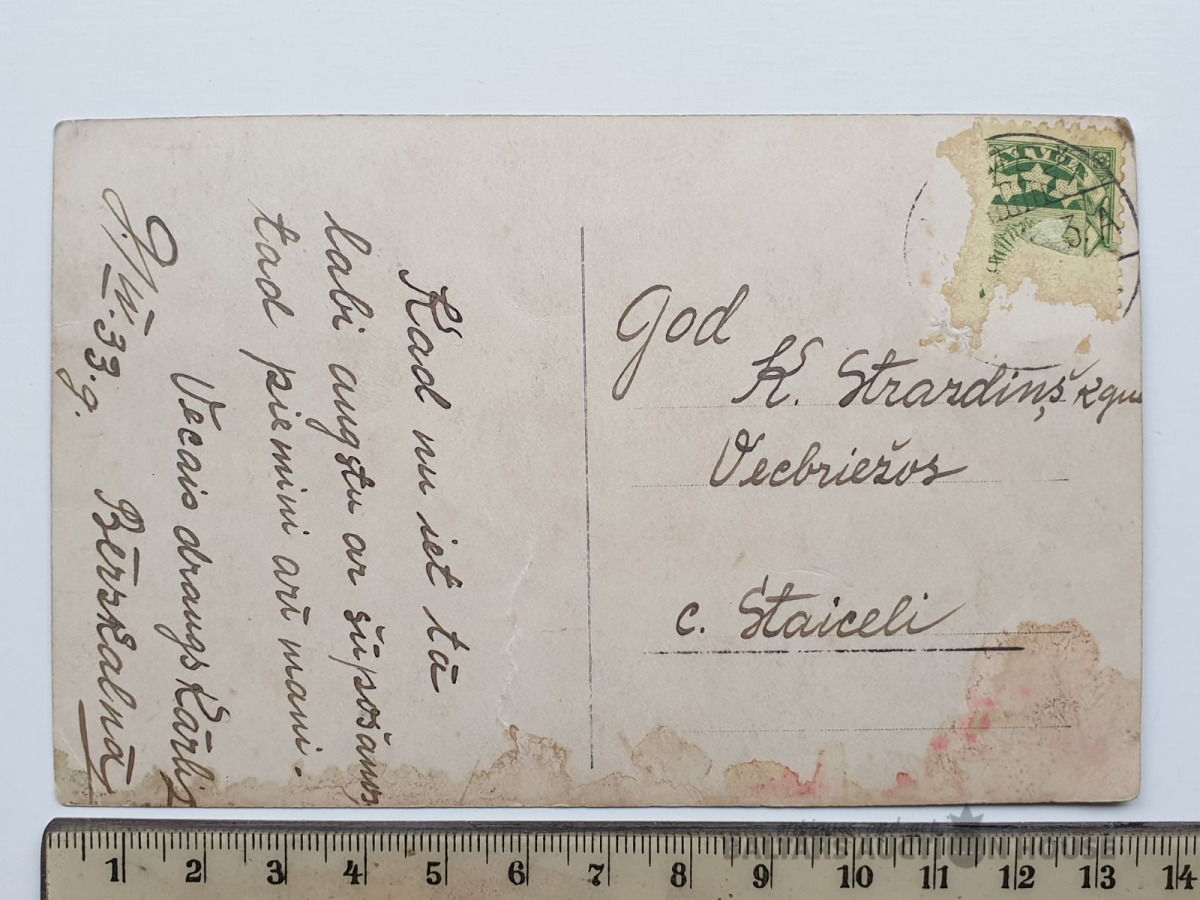 Kad nu iet tā
labi augstu ar šūpošanos
tad piemini arī mani.
Vecais draugs Kārlis
Bērzkalnā
9./IV.33.g.
God
K. Strazdiņš kgm
Vecbriežos
c. Staiceli
LATVIJA
3. A
1 2 3 4 5 6 7 8 9 10 11 12 13 14
BALTARS AUCTION HOUSE